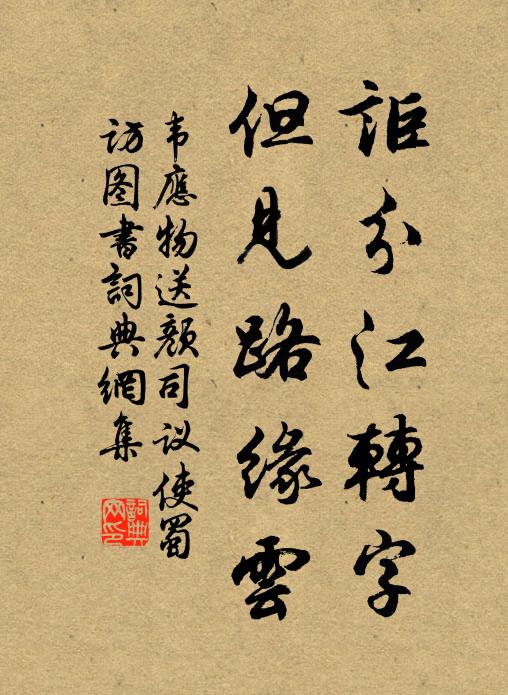 詎分江轉字
但見路緣雲
韦應物送顏司议使蜀
访图書詞典網集
詞典
网印